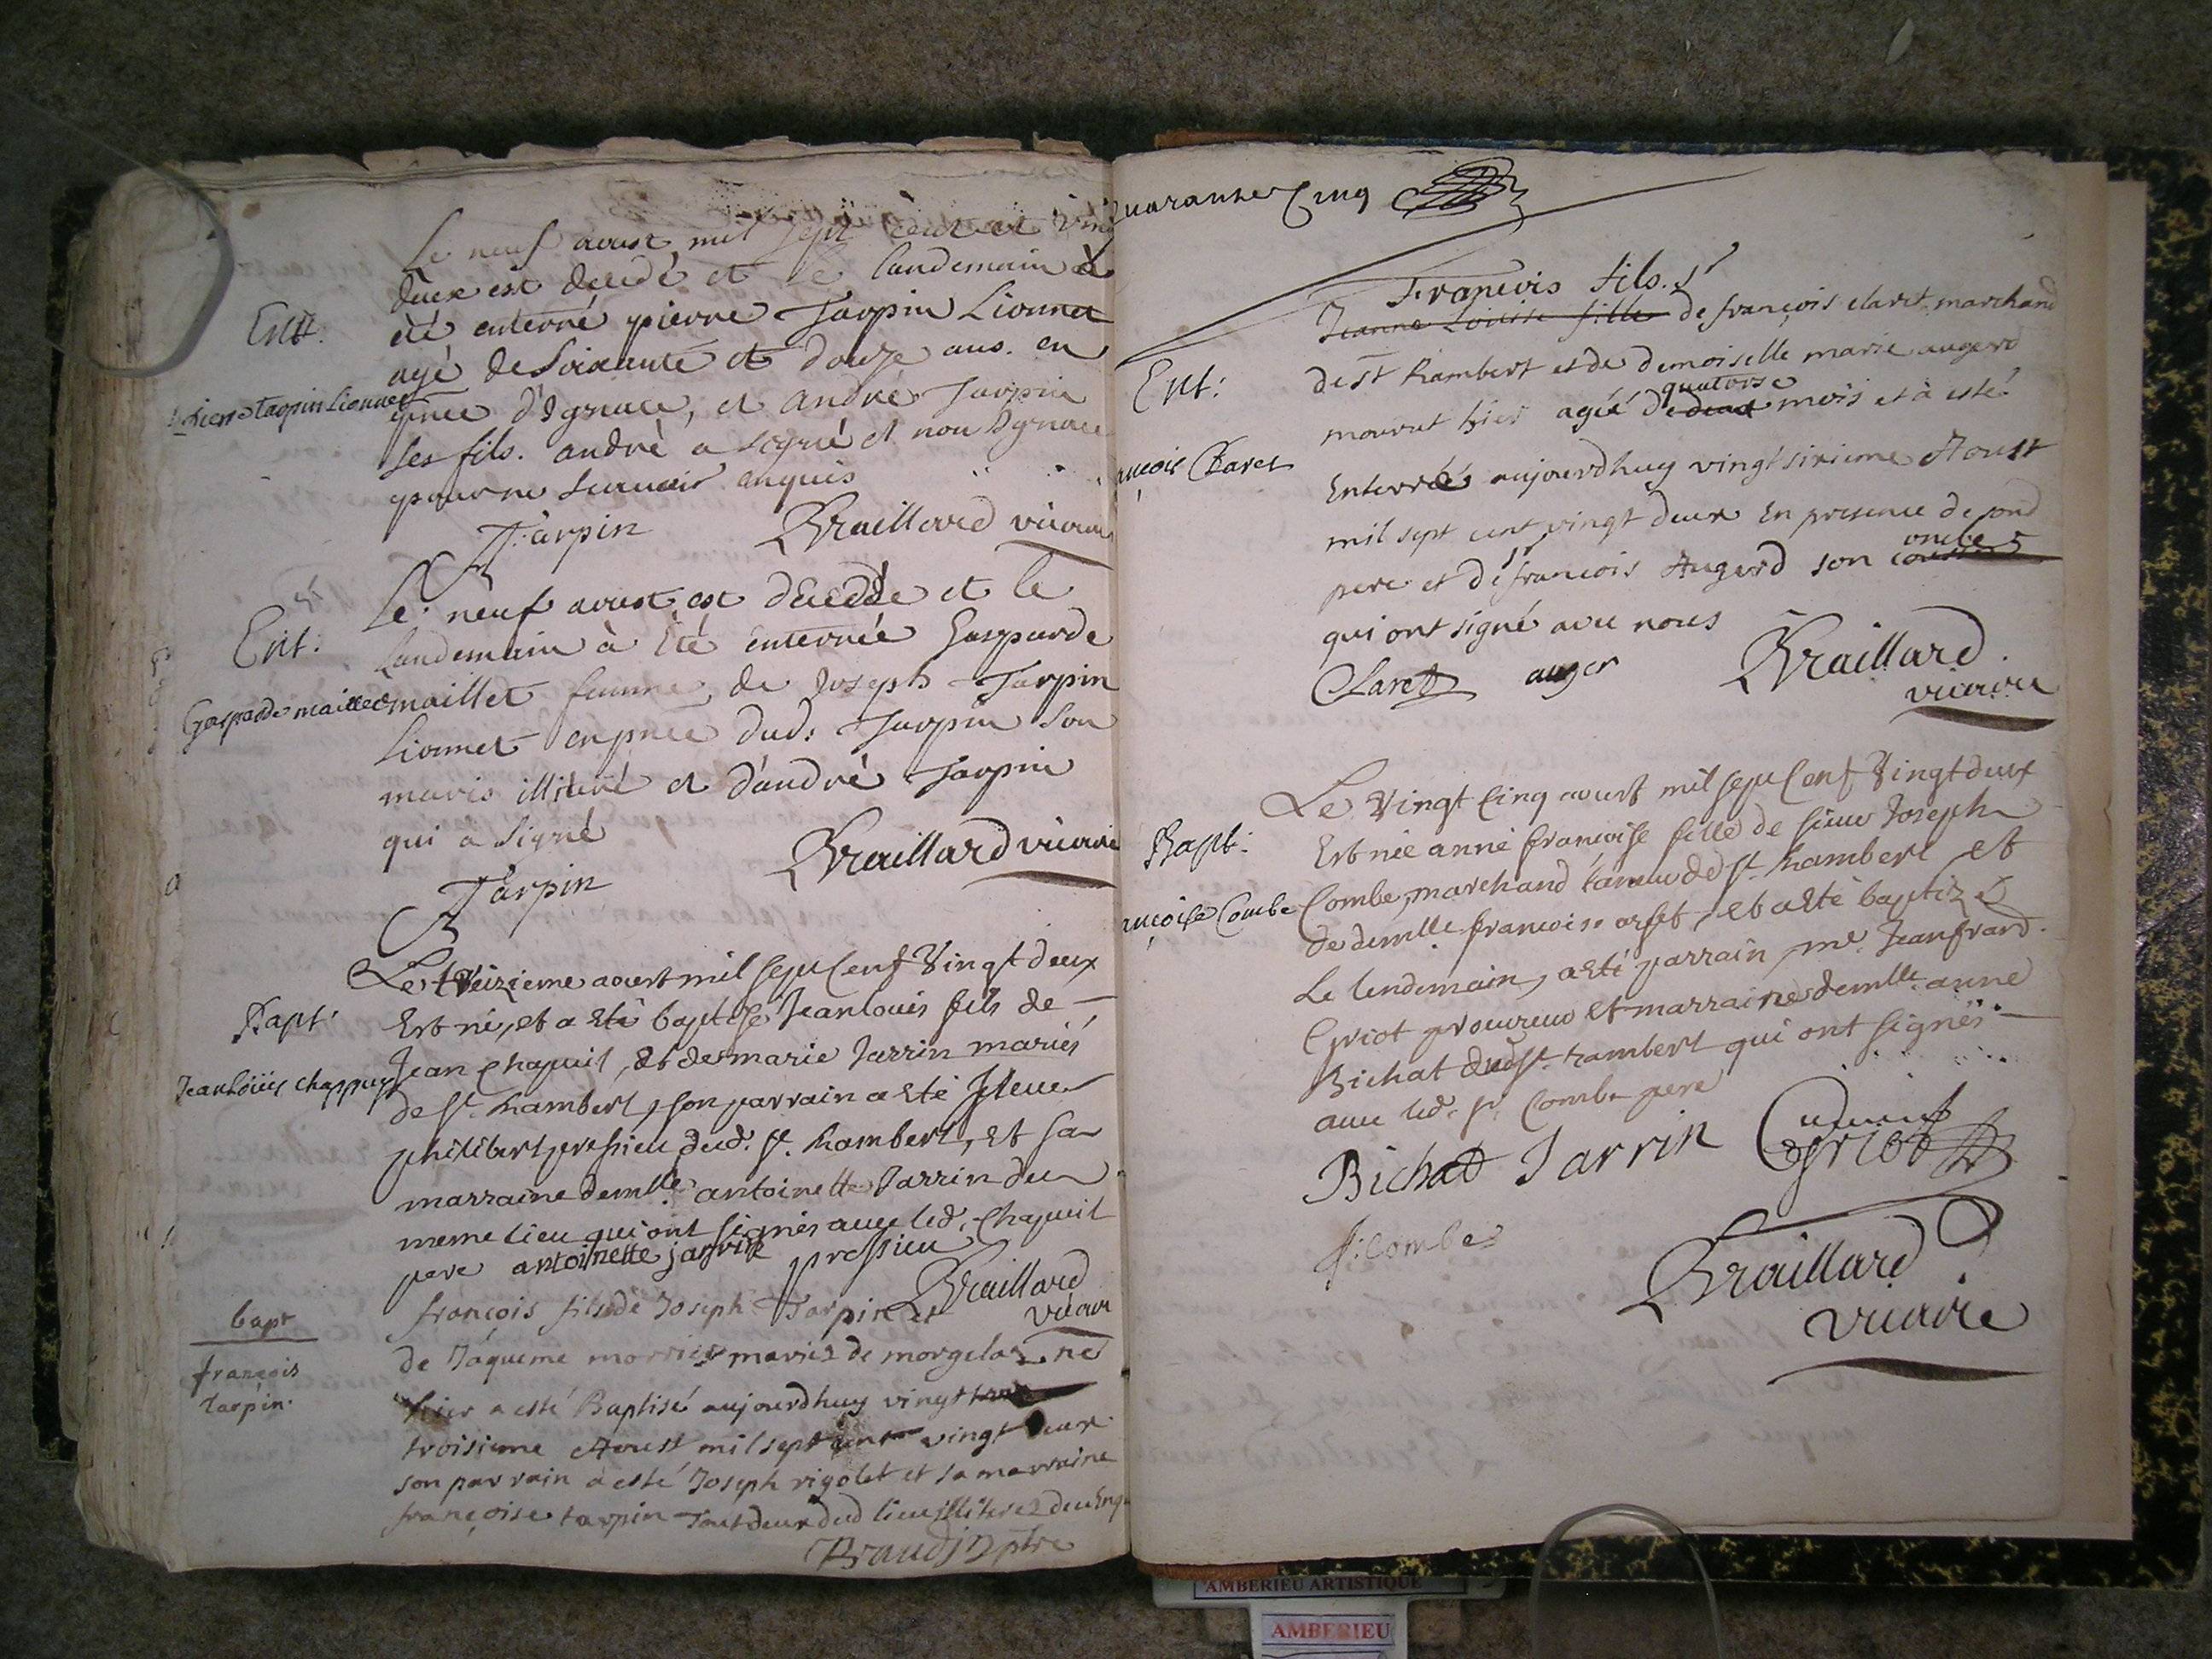 Le neuf aoust mil sept cent et vingt
deux est decedé et le landemain à
Ent.
été enterré pierre Tarpin Lionnet
agé de Soixante et douze ans. en
pierre Tarpin Lionnet
pnce d'Ignace, et andré Tarpin
ses fils. andré a signé et non Ignace
pour ne scavoir enquis
Tarpin Braillard vicaire
Le neuf aoust est decedée et le
Ent.
Landemain à été enterrée Gasparde
Gasparde maillet
maillet femme de Joseph Tarpin
Lionnet en pnce dud: Tarpin son
maris illiteré et d'andré Tarpin
qui a signé
Tarpin Braillard vicaire
Le treizieme aoust mil sept cent Vingt deux
Bapt.
Est né, et a eté baptisé Jean louis fils de
Jean chapuis, et de marie Jarrin mariés
Jean Loüis chappuys
de st. Rambert, son parrain a eté
philibert pressieu dud. st. Rambert, et sa
marraine demlle antoinette Jarrin du
meme lieu qui ont signés avec led. chapuis
pere antoinette jarrin pressieu
Braillard vicaire
bapt
françois fils de Joseph Tarpin et
françois tarpin.
de Jáqueme morrier mariez de morgelaz né
hier a esté Baptisé aujourdhuy vingt
troisieme Aoust mil sept cent vingt deux
son parrain à esté Joseph rigolet et sa marraine
françoise tarpin tout deux dud lieu illiterez deu Enq
ptre
quarante Cinq
François fils. sr
Jeanne Louise fille de françois claret marchand
de st Rambert et de demoiselle marie augerd
Ent:
quatorse
mourut hier agée de deux mois et à esté
ançois Claret
Enterrée aujourdhuy vingt sixieme Aoust
mil sept cent vingt deux En presence de sond
oncle
pere et de sr francois Augerd son cousin
qui ont signé avec nous
Claret auger Braillard
vicaire
Le Vingt Cinq aoust mil sept Cent Vingt deux
Bapt.
Est née anne francoise fille de sieur Joseph
Combe, marchand taneur de st. Rambert et
ançoise Combe
de demlle francoise orset, et a eté baptizé
Le lendemain, a eté parrain, me. Jean frard.
Griot procureur et marraine demlle anne
Bichat dud st. rambert qui ont signés
avec led. sr. Combe pere
Bichat Jarrin
Griot
J: Combe
Braillard
vicaire
AMBERIEU ARTISTIQUE
AMBERIEU